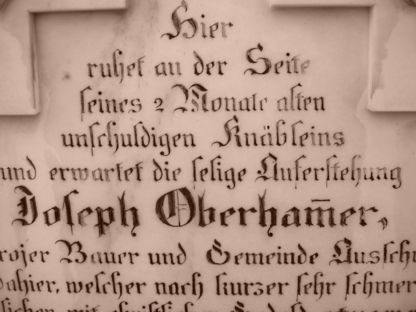 Hier
ruhet an der Seite
seines 2 Monate alten
unschuldigen Knäbleins
und erwartet die selige Auferstehung
Joseph Oberham̄er,
rojer Bauer und Gemeinde Ausschu
dahier, welcher nach kurzer sehr schmer